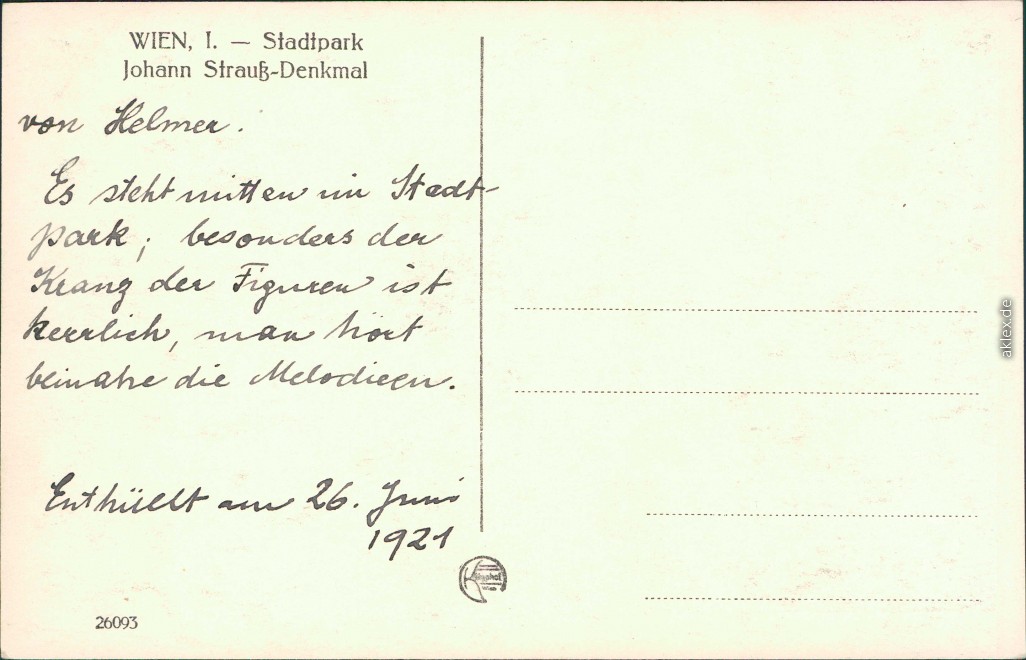 WIEN, I. — Stadtpark
Johann Strauß-Denkmal
von Helmer.
Es steht mitten im Stadt-
park; besonders der
Kranz der Figuren ist
herrlich, man hört
beinahe die Melodieen.
Enthüllt am 26. Juni
1921
Wien
26093
aklex.de